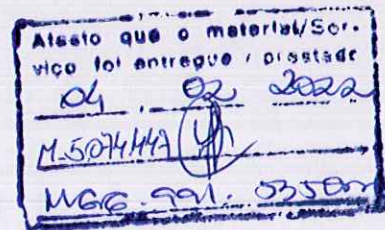 Atesto que o material/Ser-
viço foi entregue / prestado
04 . 02 2022
M.5074447
MG6.991.535